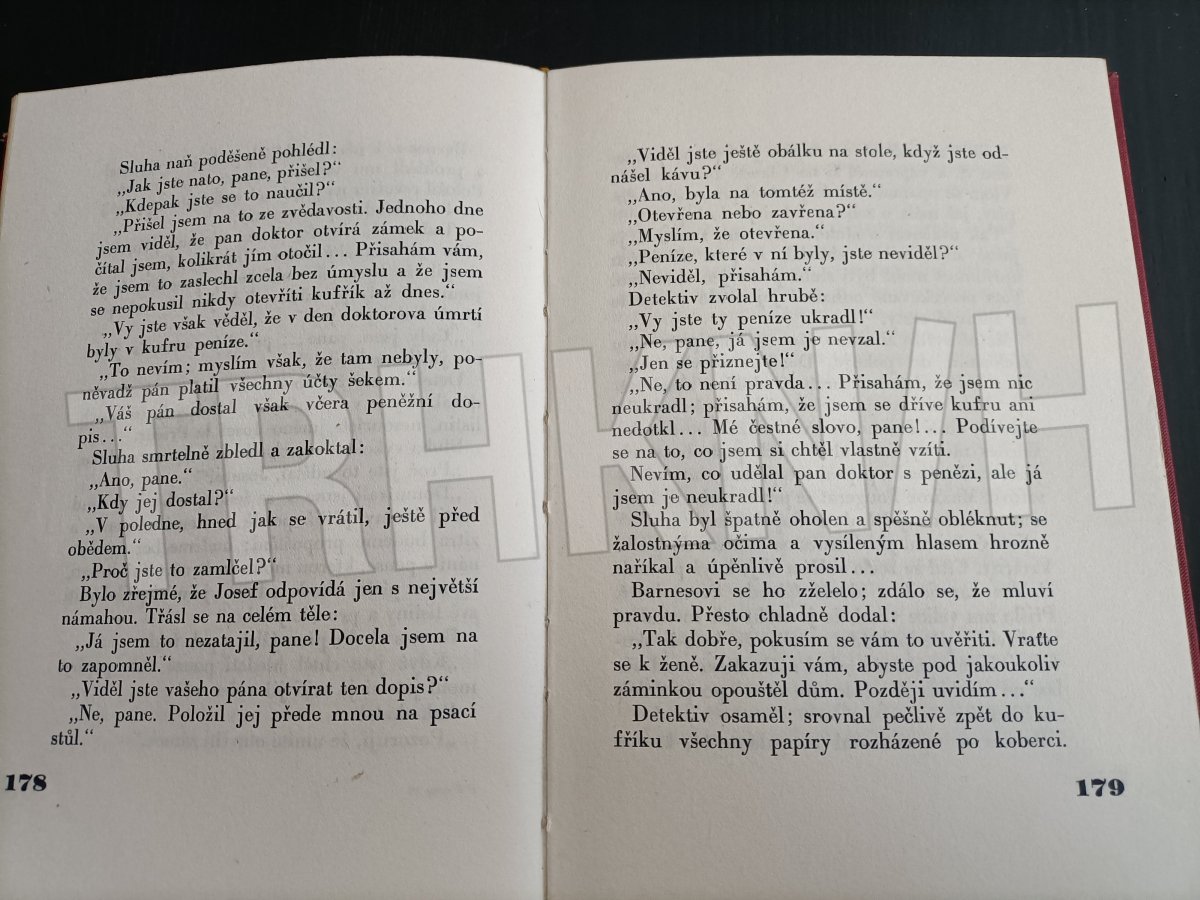 Sluha naň poděšeně pohlédl:
„Jak jste nato, pane, přišel?“
„Kdepak jste se to naučil?“
„Přišel jsem na to ze zvědavosti. Jednoho dne
jsem viděl, že pan doktor otvírá zámek a po-
čítal jsem, kolikrát jím otočil... Přisahám vám,
že jsem to zaslechl zcela bez úmyslu a že jsem
se nepokusil nikdy otevříti kufřík až dnes.“
„Vy jste však věděl, že v den doktorova úmrtí
byly v kufru peníze.“
„To nevím; myslím však, že tam nebyly, po-
něvadž pán platil všechny účty šekem.“
„Váš pán dostal však včera peněžní do-
pis...“
Sluha smrtelně zbledl a zakoktal:
„Ano, pane.“
„Kdy jej dostal?“
„V poledne, hned jak se vrátil, ještě před
obědem.“
„Proč jste to zamlčel?“
Bylo zřejmé, že Josef odpovídá jen s největší
námahou. Třásl se na celém těle:
„Já jsem to nezatajil, pane! Docela jsem na
to zapomněl.“
„Viděl jste vašeho pána otvírat ten dopis?“
„Ne, pane. Položil jej přede mnou na psací
stůl.“
178
„Viděl jste ještě obálku na stole, když jste od-
nášel kávu?“
„Ano, byla na tomtéž místě.“
„Otevřena nebo zavřena?“
„Myslím, že otevřena.“
„Peníze, které v ní byly, jste neviděl?“
„Neviděl, přisahám.“
Detektiv zvolal hrubě:
„Vy jste ty peníze ukradl!“
„Ne, pane, já jsem je nevzal.“
„Jen se přiznejte!“
„Ne, to není pravda... Přisahám, že jsem nic
neukradl; přisahám, že jsem se dříve kufru ani
nedotkl... Mé čestné slovo, pane!... Podívejte
se na to, co jsem si chtěl vlastně vzíti.
Nevím, co udělal pan doktor s penězi, ale já
jsem je neukradl!“
Sluha byl špatně oholen a spěšně obléknut; se
žalostnýma očima a vysíleným hlasem hrozně
naříkal a úpěnlivě prosil...
Barnesovi se ho zželelo; zdálo se, že mluví
pravdu. Přesto chladně dodal:
„Tak dobře, pokusím se vám to uvěřiti. Vraťte
se k ženě. Zakazuji vám, abyste pod jakoukoliv
záminkou opouštěl dům. Později uvidím...“
Detektiv osaměl; srovnal pečlivě zpět do ku-
fříku všechny papíry rozházené po koberci.
179
TRHKNIH